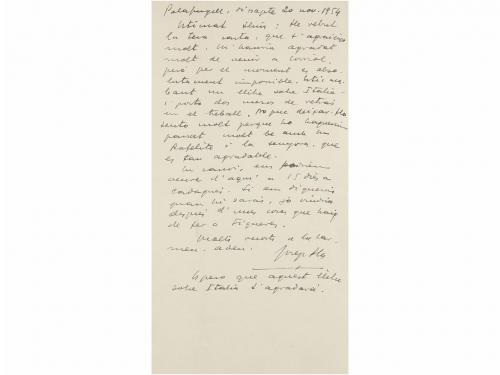 Palafrugell, dissapte 20 nov. 1954
Estimat Lluís: He rebut
la teva carta, que t'agraeixo
molt. M'hauria agradat
molt de venir a
però per el moment és abso-
lutament impossible. Estic aca-
bant un llibre sobre Itàlia
i porto dos mesos de retràs
en el treball. No puc deixar-ho.
Sento molt perque ho haguéssim
passat molt bé amb en
Rafelito i la senyora, que
es tan agradable.
En canvi, ens podríem
veure d'aquí a 15 dies a
Cadaqués. Si em diguessis
quan hi seràs, jo vindria
després d'unes coses que haig
de fer a Figueres.
Molts records a la Car-
men. Adéu.
Josep Pla
Espero que aquest llibre
sobre Itàlia t'agradarà.